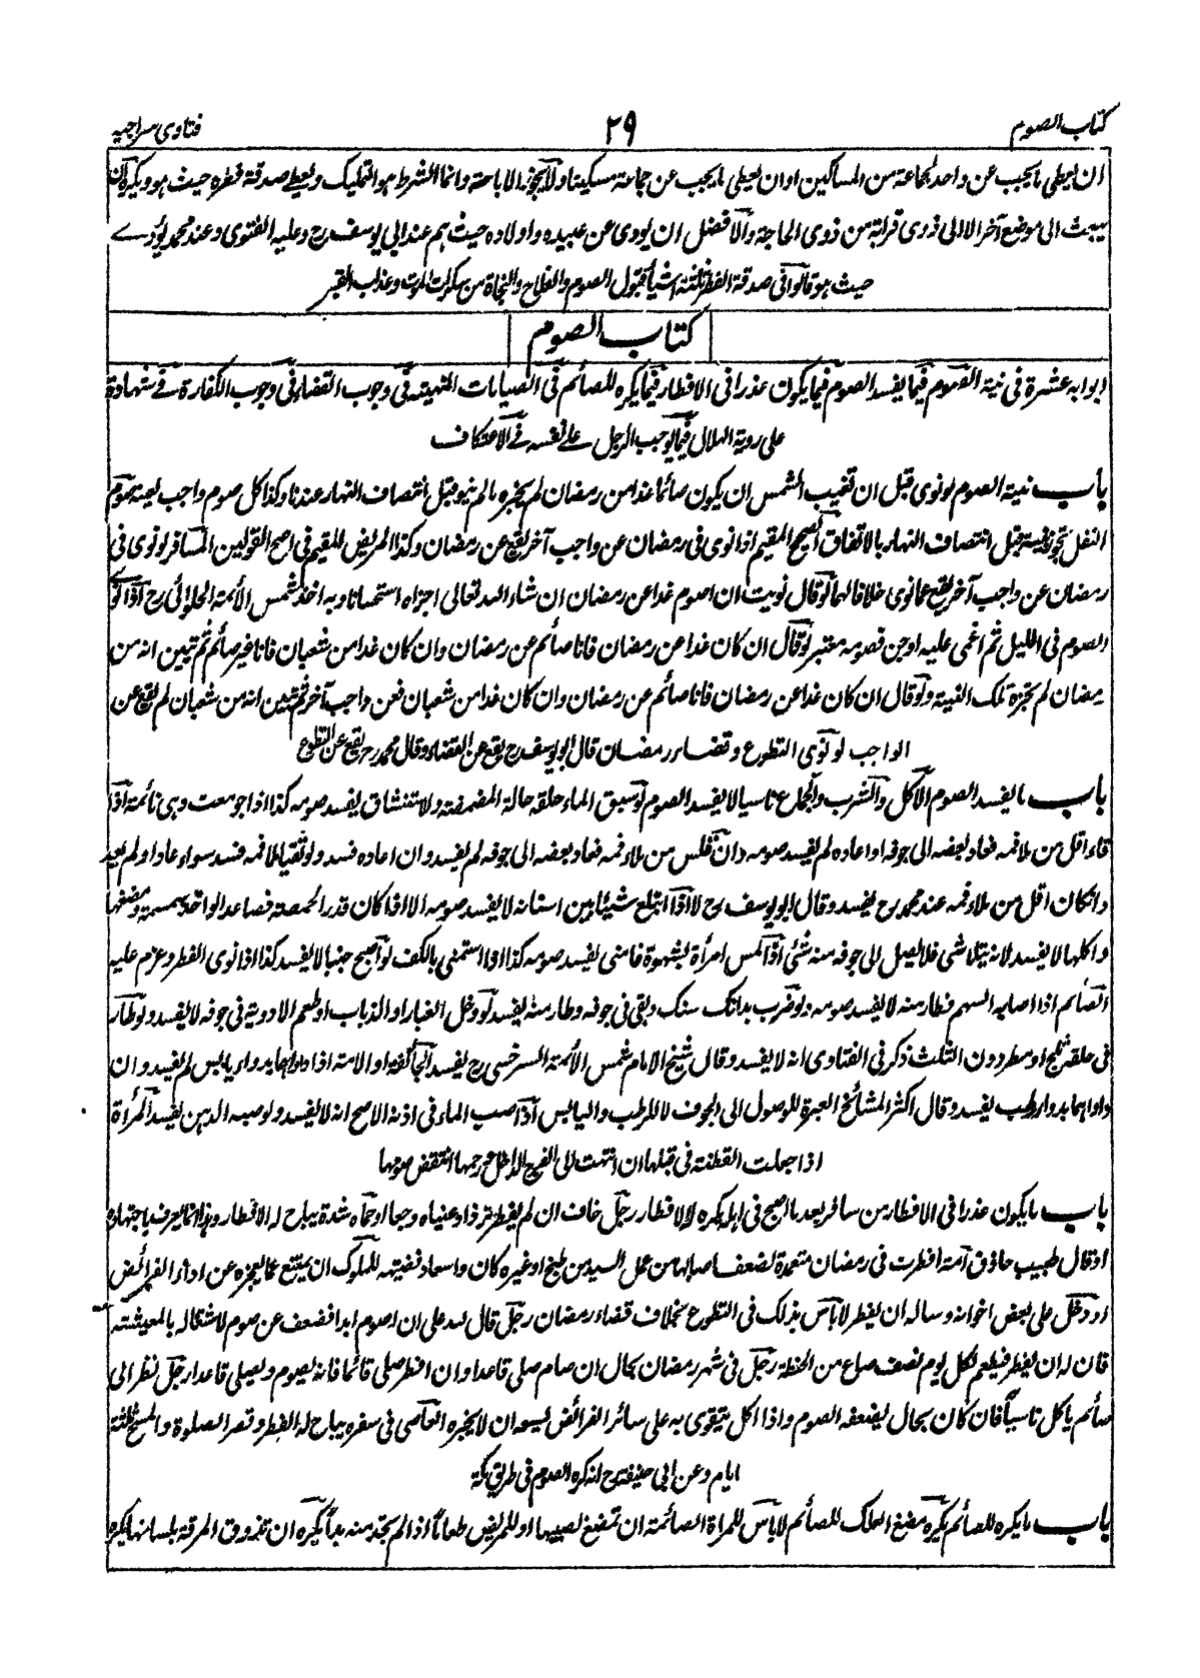 كتاب الصوم ٢٩ فتاوى سراجيه
ان يعطى ما يجب عن واحد لجماعة من المساكين او ان يعطى ما يجب عن جماعة مسكينا ولا يجوز الاباحة وانما الشرط هو التمليك ويعطى صدقة فطره حيث هو ويكره ان
يبعث الى موضع آخر الا الى ذوى قرابة من ذوى الحاجة والافضل ان يودى عن عبيده واولاده حيث هم عند ابى يوسف رح وعليه الفتوى وعند محمد يودى
حيث هو قالوا فى صدقة الفطر ثلثة اشياء قبول الصوم والفلاح والنجاة من سكرات الموت وعذاب القبر
كتاب الصوم
ابوابه عشرة فى نية الصوم فيما يفسد الصوم فيما يكون عذرا فى الافطار فيما يكره للصائم فى الصيامات المنهية فى وجوب القضاء فى وجوب الكفارة فى شهادة
على روية الهلال فيما يوجب الرجل على نفسه فى الاعتكاف
باب نية الصوم لو نوى قبل ان تغيب الشمس ان يكون صائما غدا من رمضان لم يجزه ما لم ينو قبل انتصاف النهار عندنا وكذا كل صوم واجب بعينه صوم
النفل يجوز بنية قبل انتصاف النهار بالاتفاق الصحيح المقيم اذا نوى فى رمضان عن واجب آخر يقع عن رمضان وكذا المريض للمقيم فى اصح القولين المسافر لو نوى فى
رمضان عن واجب آخر يقع عما نوى خلافا لهما لو قال نويت ان اصوم غدا عن رمضان ان شاء الله تعالى اجزاه استحسانا وبه اخذ شمس الأئمة الحلوائى رح اذا نوى
الصوم فى الليل ثم اغمى عليه او جن فصومه معتبر لو قال ان كان غدا عن رمضان فانا صائم عن رمضان وان كان غدا من شعبان فانا غير صائم ثم تبين انه من
رمضان لم يجزه تلك النية ولو قال ان كان غدا عن رمضان فانا صائم عن رمضان وان كان غدا من شعبان فعن واجب آخر ثم تبين انه من شعبان لم يقع عن
الواجب لو نوى التطوع وقضاء رمضان قال ابو يوسف رح يقع عن القضاء وقال محمد رح يقع عن التطوع
باب ما يفسد الصوم الاكل والشرب والجماع ناسيا لا يفسد الصوم لو سبق الماء حلقه حالة المضمضة والاستنشاق يفسد صومه كذا اذا جومعت وهى نائمة اذا
قاء اقل من ملا فمه فعاد بعضه الى جوفه او اعاده لم يفسد صومه وان قلس من ملاء فمه فعاد بعضه الى جوفه لم يفسد وان اعاده فسد ولو تقيأ ملا فمه فسد سواء عاد او لم يعد
وان كان اقل من ملاء فمه عند محمد رح يفسد وقال ابو يوسف رح لا اذا ابتلع شيئا بين اسنانه لا يفسد صومه الا اذا كان قدر الحمصة فصاعدا لو اخذ سمسمة ومضغها
واكلها لا يفسد لانه يتلاشى فلا يصل الى جوفه منه شئ اذا لمس امرأة بشهوة فامنى يفسد صومه كذا اذا استمنى بالكف لو اصبح جنبا لا يفسد كذا اذا نوى الفطر وعزم عليه
الصائم اذا اصابه السهم فطار منه لا يفسد صومه ولو ضرب بدانك سنك وبقى فى جوفه وطار منه يفسد لو دخل الغبار او الذباب او طعم الادوية فى جوفه لا يفسد ولو طار
فى حلقه ثلج او مطر دون الثلث ذكر فى الفتاوى انه لا يفسد وقال شيخ الامام شمس الأئمة السرخسى رح يفسد الجائفة او الامة اذا داواهما بدواء يابس لم يفسد وان
داواهما بدواء رطب يفسد وقال اكثر المشائخ العبرة للوصول الى الجوف لا للرطب واليابس اذا صب الماء فى اذنه الاصح انه لا يفسد ولو صب الدهن يفسد المرأة
اذا جعلت القطنة فى قبلها ان انتهت الى الفرج الداخل هو رحمها انتقض صومها
باب ما يكون عذرا فى الافطار من سافر بعد ما اصبح فى اهله يكره له الافطار رجل خاف ان لم يفطر تزداد عيناه وجعا او حماه شدة يباح له الافطار وهذا انما يعرف باجتهاده
او قال طبيب حاذق امة افطرت فى رمضان متعمدة لضعف اصابها من عمل السيد من طبخ او غيره كان واسعا وتقضيه للمملوك ان يمتنع عما يعجزه عن اداء الفرائض
او دخل على بعض اخوانه وساله ان يفطر لا باس بذلك فى التطوع بخلاف قضاء رمضان رجل قال لله على ان اصوم ابدا فضعف عن صوم لاشتغاله بالمعيشة
فان له ان يفطر فيطعم لكل يوم نصف صاع من الحنطة رجل فى شهر رمضان بحال ان صام صلى قاعدا وان افطر صلى قائما فانه يصوم ويصلى قاعدا رجل نظر الى
صائم ياكل ناسيا فان كان بحال يضعفه الصوم واذا اكل يتقوى به على سائر الفرائض يسعه ان لا يخبره العاصى فى سفره يباح له الفطر وقصر الصلوة والمسح ثلثة
ايام وعن ابى حنيفة رح انه كره الصوم فى طريق مكة
باب ما يكره للصائم يكره مضغ العلك للصائم لا باس للمراة الصائمة ان تمضغ لصبيها او للمريض طعاما اذا لم يجد منه بدا يكره ان تذوق المرقة بلسانها يكره